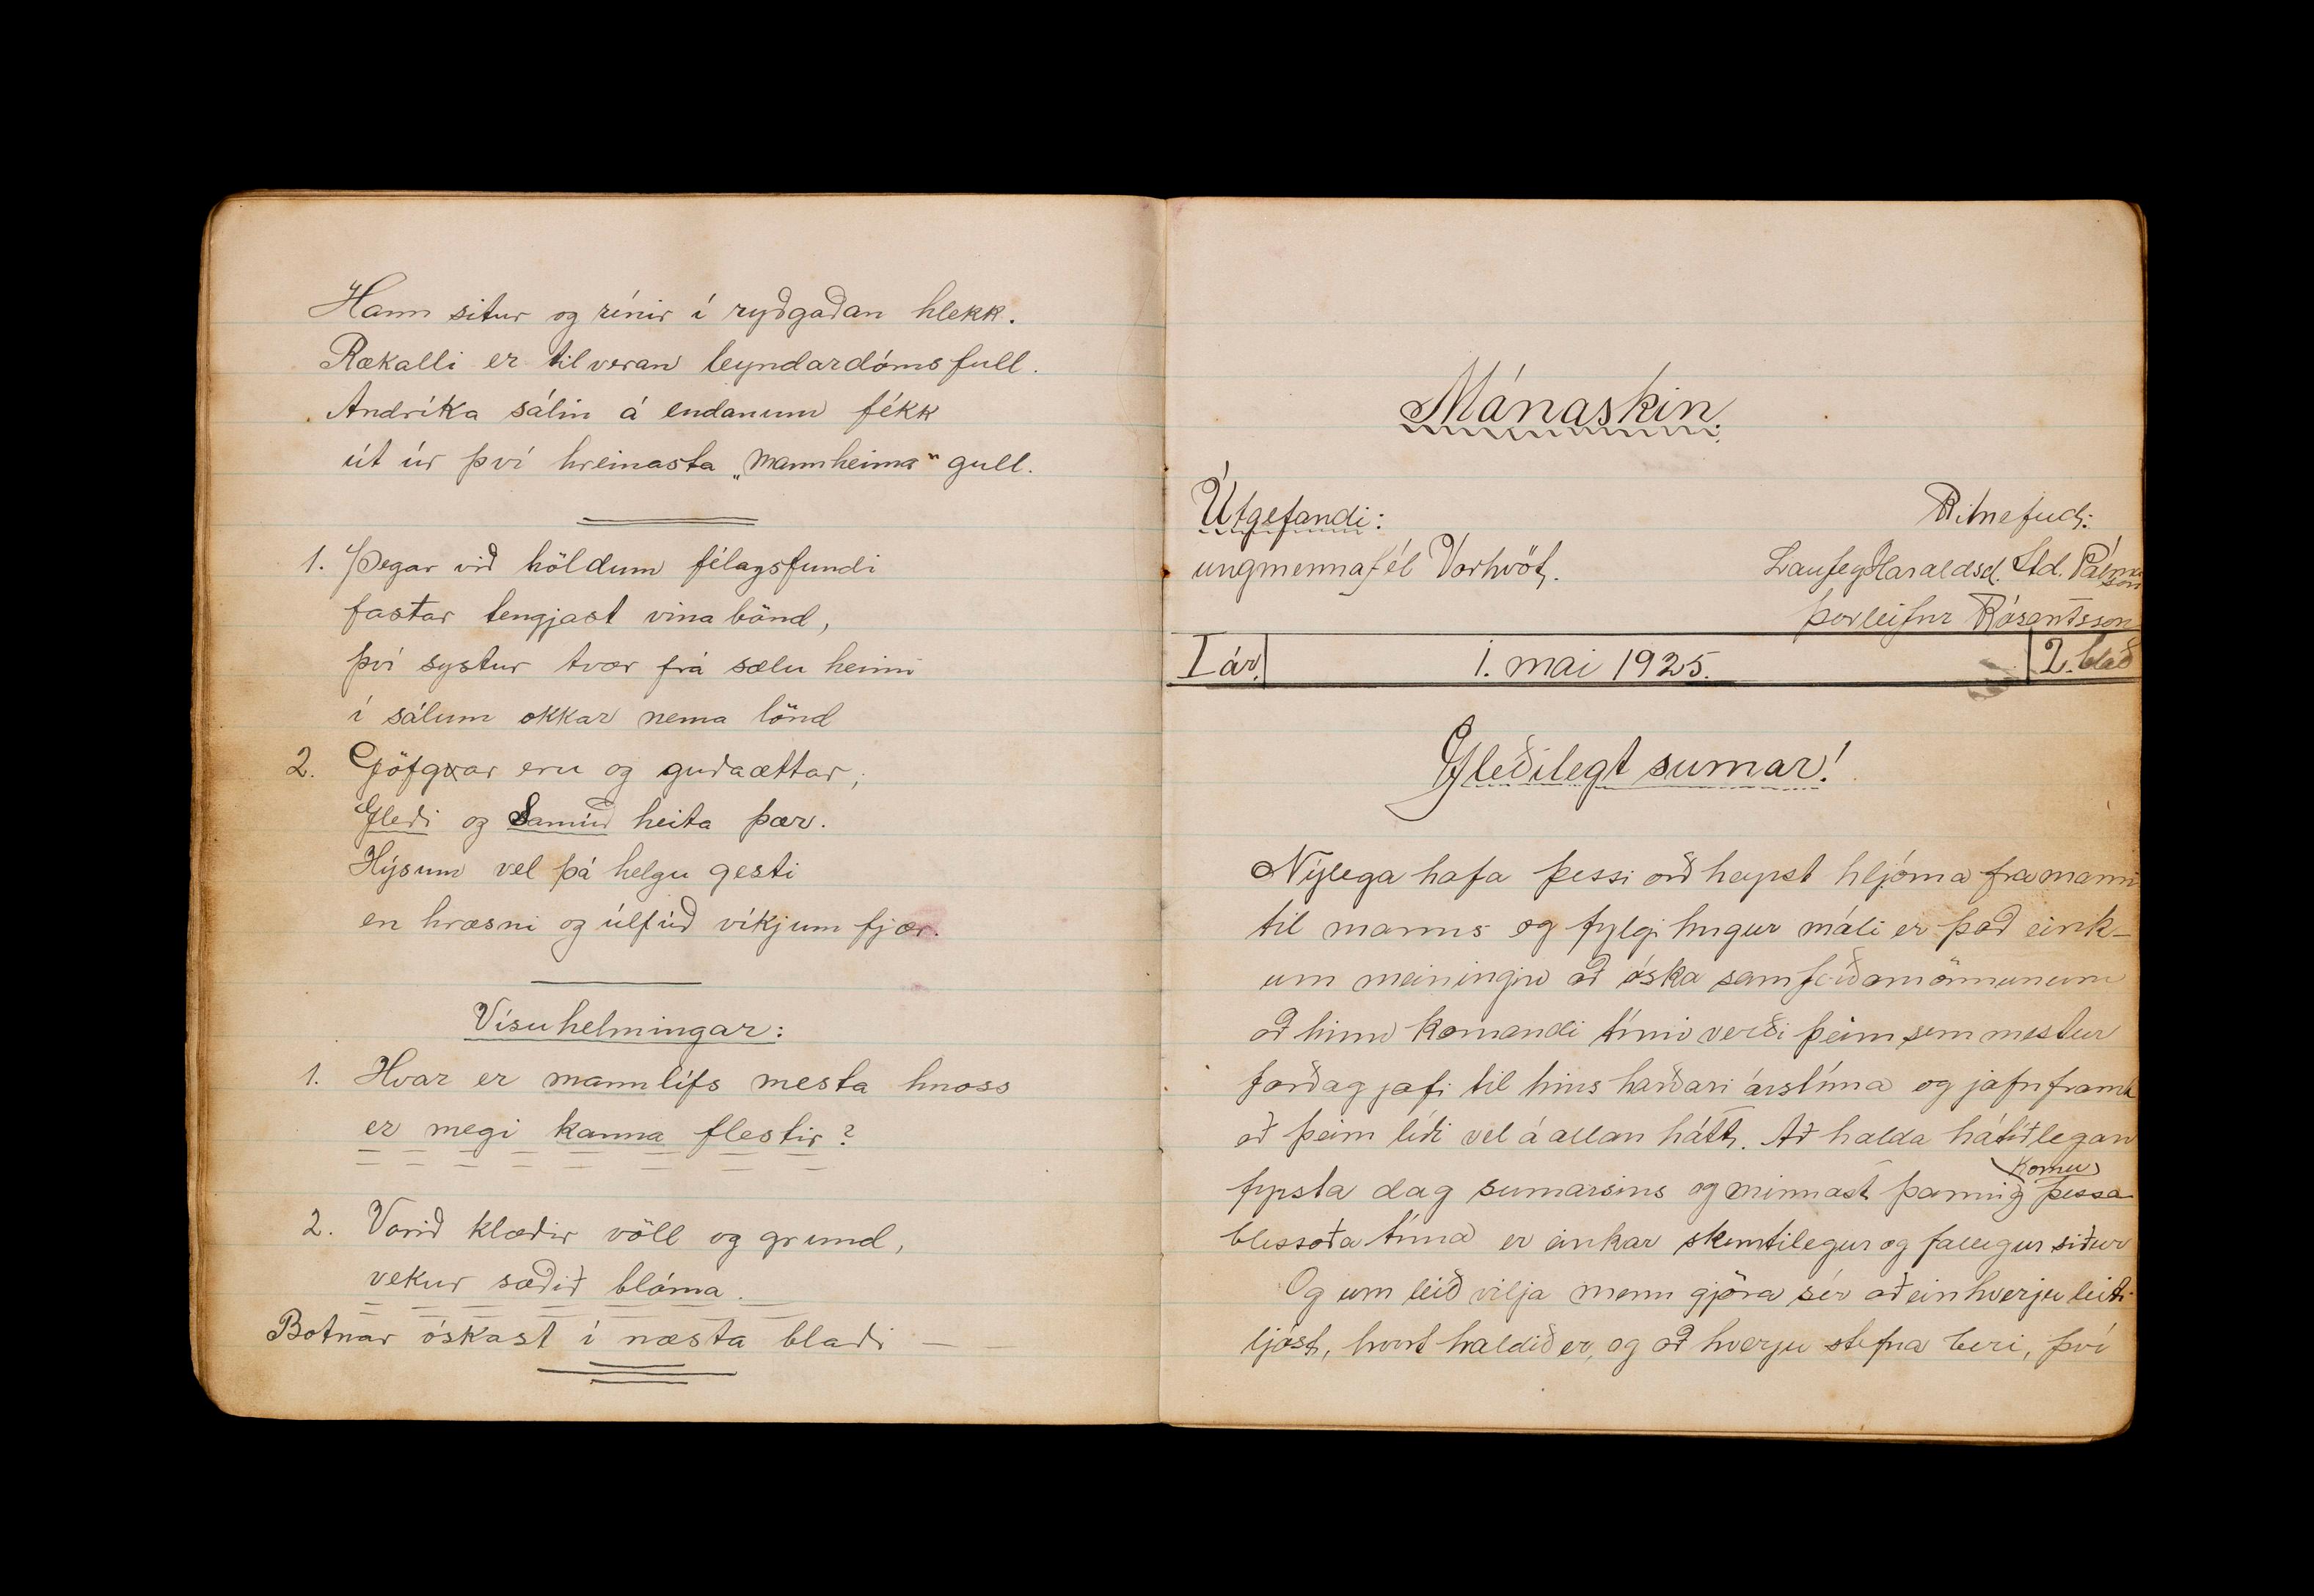 Hann situr og rínir í ryðgaðan hlekk.
Rækalli er tilveran leyndardómsfull.
Andríka sálin á endanum fékk
út úr því hreinasta „mannheima“ gull.
1. Þegar við höldum félagsfundi
fastar tengjast vina bönd,
því systur tvær frá sælu heimi
í sálum okkar nema lönd
2. Göfgar eru og guðaættar,
Gleði og Samúð heita þær.
Hýsum vel þá helgu gesti
en hræsni og úlfúð víkjum fjær.
Vísuhelmingar:
1. Hvar er mannlífs mesta hnoss
er megi kanna flestir?
2. Vorið klæðir völl og grund,
vekur sæðið blóma.
Botnar óskast í næsta blaði —
Mánaskin.
Útgefandi:
ungmennafél Vorhvöt.
Ritnefnd:
Laufey Haraldsd. Std. Pálmason
Þorleifur Rósantsson
I ár. 1. mai 1925. 2. blað
Gleðilegt sumar!
Nýlega hafa þessi orð heyrst hljóma frá manni
til manns og fylgi hugur máli er það eink-
um meiningin að óska samferðamönnunum
að hinn komandi tími verði þeim sem mestur
forðagjafi til hins harðari árstíma og jafnframt
að þeim líði vel á allan hátt. Að halda hátíðlegan
fyrsta dag sumarsins og minnast þannig komu þessa
blessoða tíma er einkar skemtilegur og fallegur siður
Og um leið vilja menn gjöra sér að einhverju leiti
ljóst, hvort haldið er, og að hverju stefna beri, því